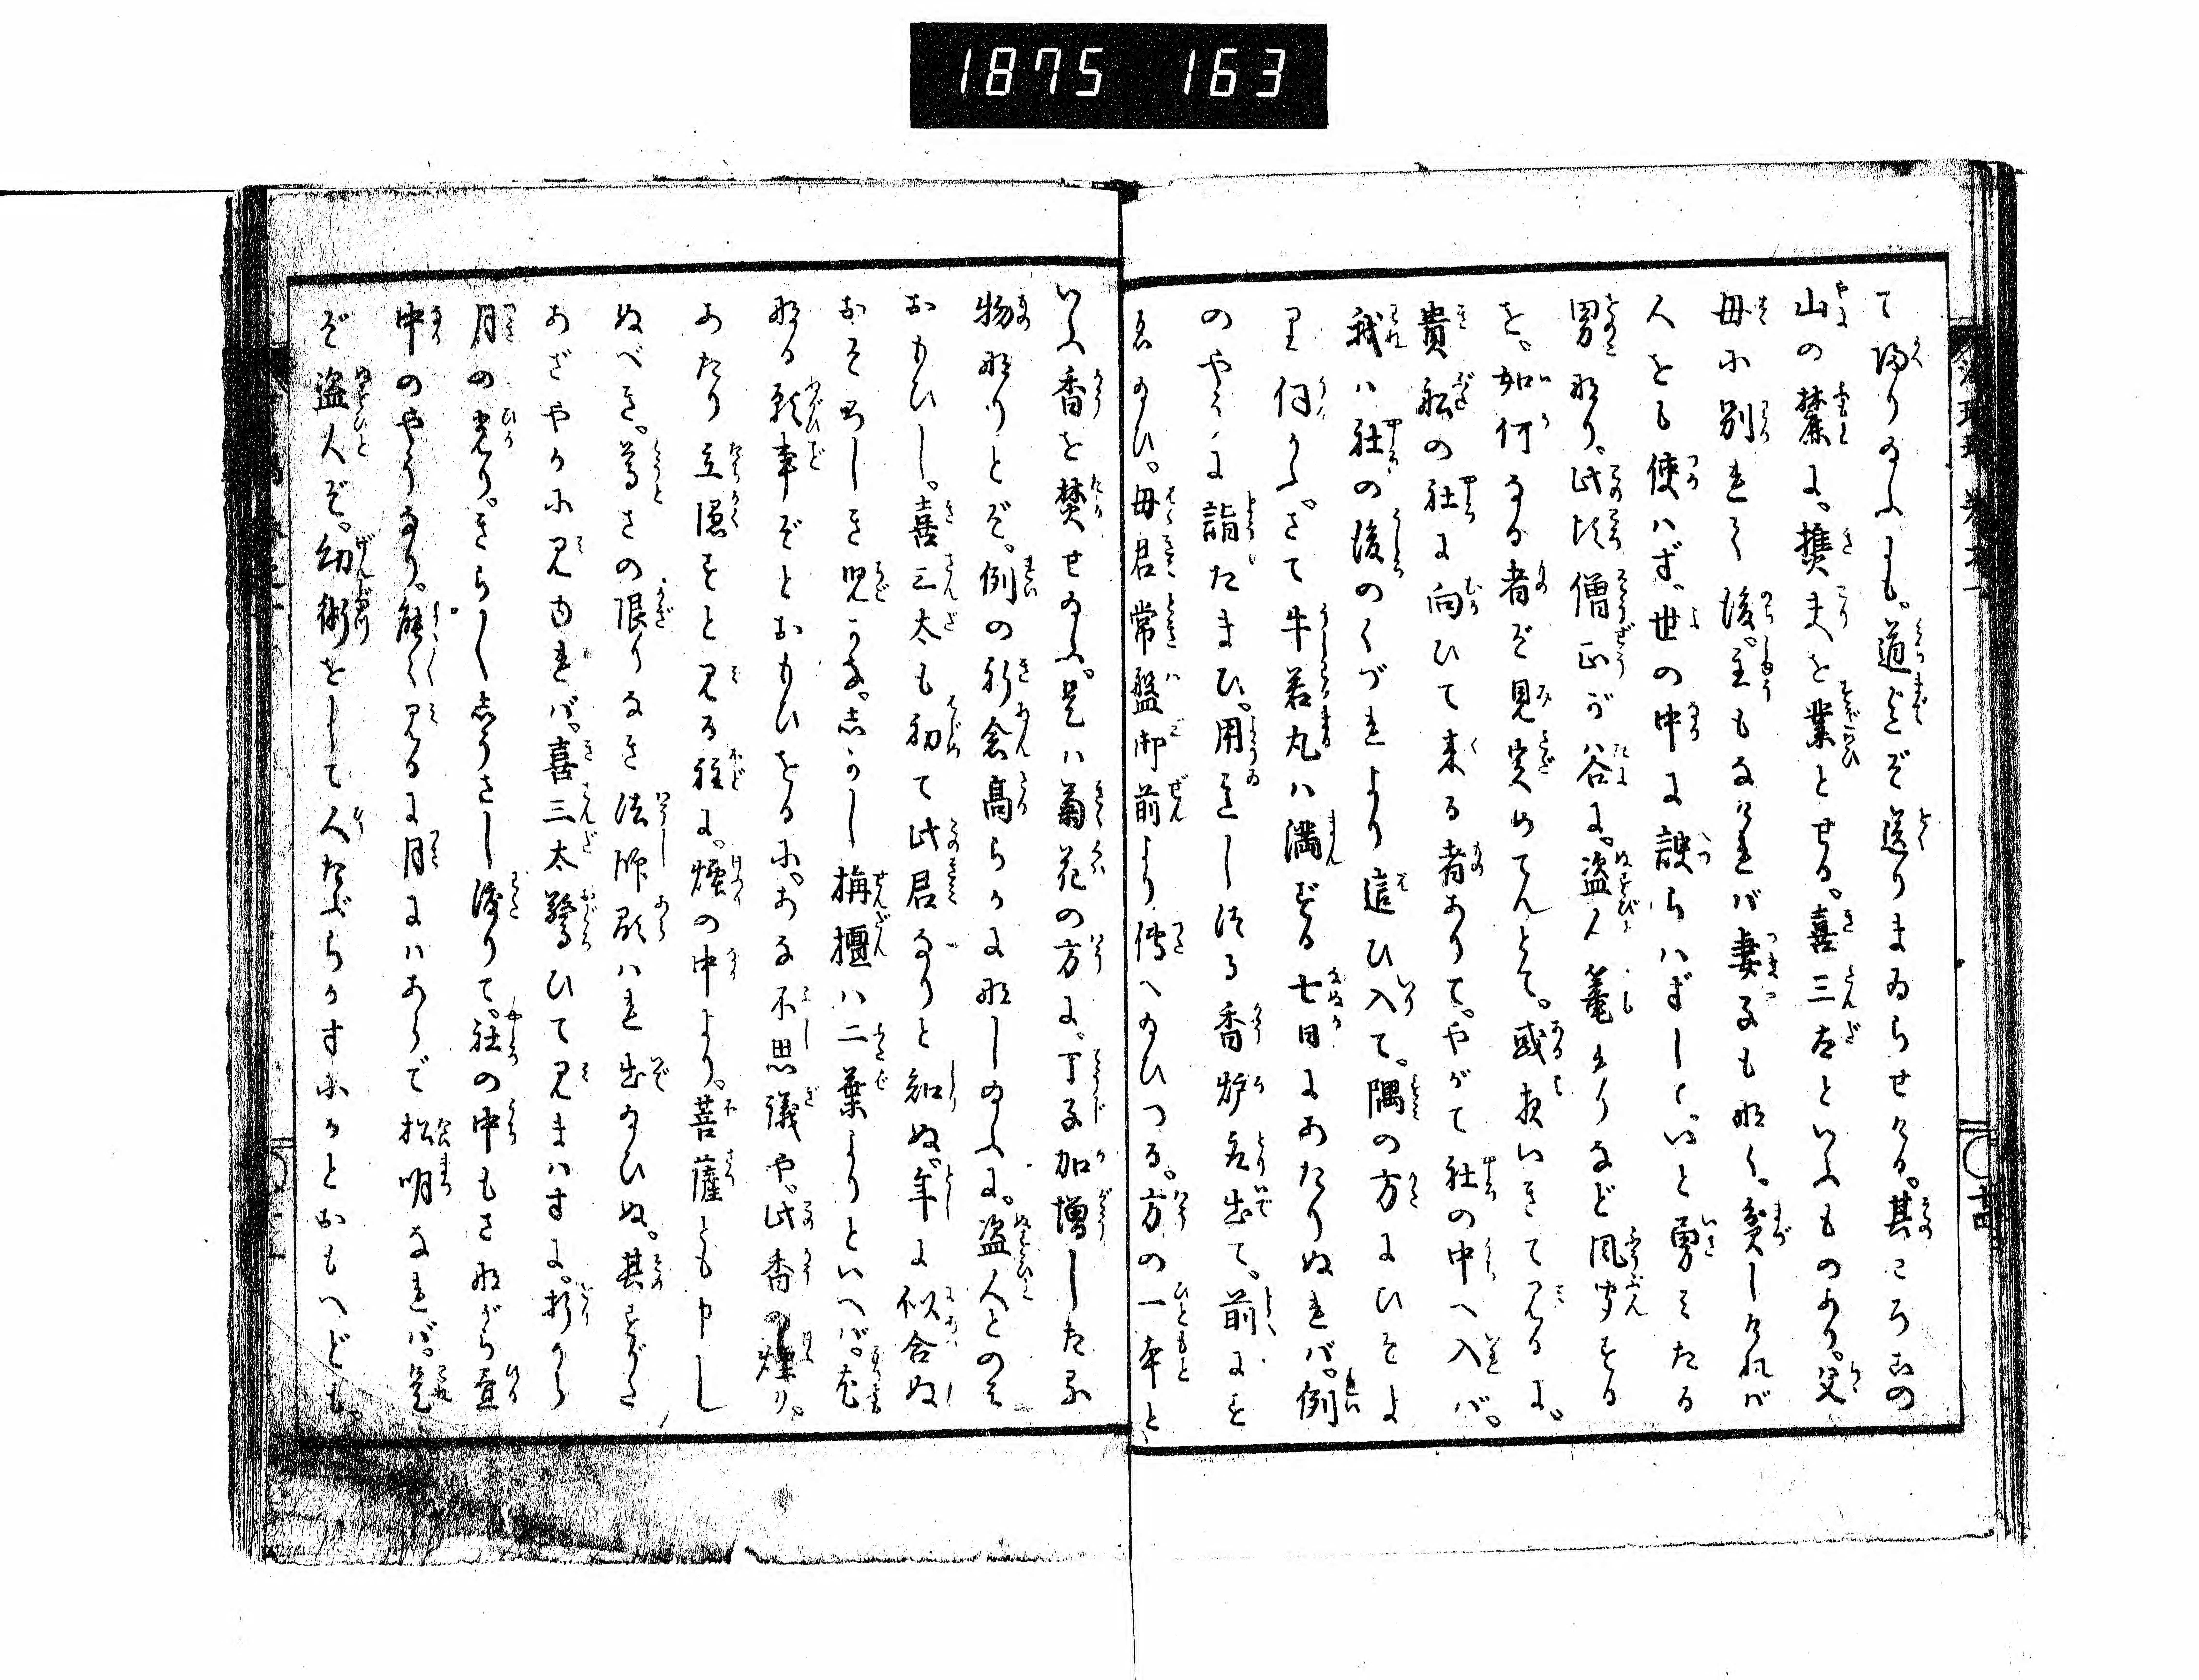 1875 163
て帰り給ふにも。道までぞ送りまゐらせける。其ころ此の
山の麓に。樵夫を業とせる。喜三太といふものあり。父
母に別れて後。主もなければ妻子も無く。貧しければ
人をも使はず。世の中に諛らはずして。いと勇みたる
男なり。此頃僧正が谷に。盗人篭れりなど風聞する
を。如何なる者ぞ見究めてんとて。或夜いきて見るに。
貴船の社に向ひて来る者ありて。やがて社の中へ入ば。
我は社の後のくづれより這ひ入て。隅の方にひそま
り伺ふ。さて牛若丸は満ずる七日にあたりぬれば。例
のやうに詣たまひ。用意し給る香炉取出て。前にす
ゑ給ひ。母君常盤御前より伝へ給ひつる。方の一本と
いふ香を焚せ給ふ。是は菊花の方に。丁子加増したる
物なりとぞ。例の祈念高らかに為し給ふに。盗人とのみ
おもひし。喜三太も初て此君なりと知ぬ。年に似合ぬ
おそろしき児かな。しかし栴檀は二葉よりといへば。
なる願事ぞとおもひをるに。あな不思議や。此香の煙り。
あたり立隠すと見る程に。煙の中より。菩薩とも申し
ぬべき。尊さの限りなき法師顕はれ出給ひぬ。其すがた
あざやかに見ゆれば。喜三太驚ひて見まはすに。折から
月の光り。きら〳〵しうさし渡りて。社の中もさながら昼
中のやうなり。能く〳〵見るに月にはあらで松明なれば。是
ぞ盗人ぞ。幻術をして人たぶらかすにかとおもへども。